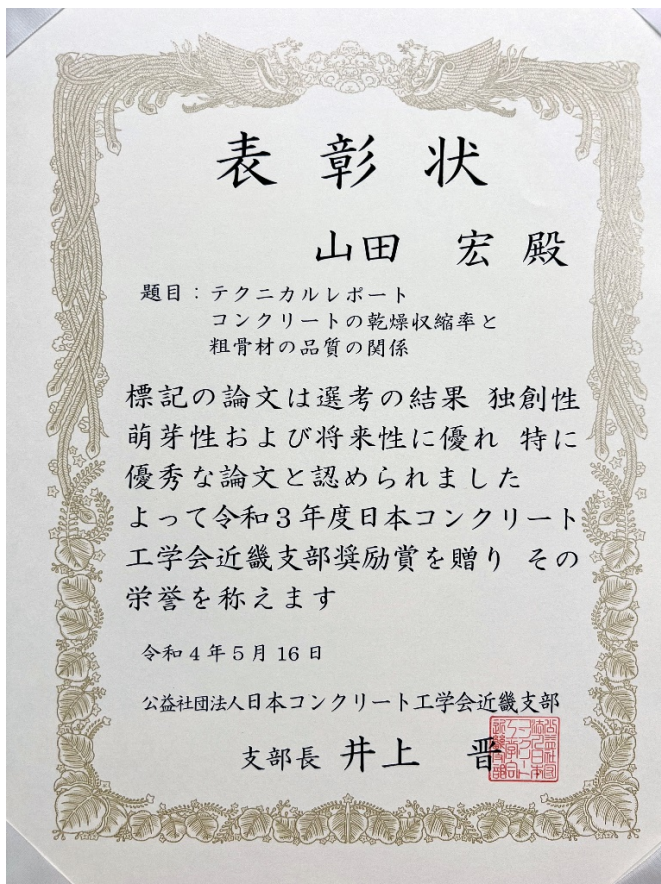 表彰状
山田 宏 殿
題目：テクニカルレポート
コンクリートの乾燥収縮率と
粗骨材の品質の関係
標記の論文は選考の結果 独創性
萌芽性および将来性に優れ 特に
優秀な論文と認められました
よって令和3年度日本コンクリート
工学会近畿支部奨励賞を贈り その
栄誉を称えます
令和4年5月16日
公益社団法人日本コンクリート工学会近畿支部
支部長 井上 晋